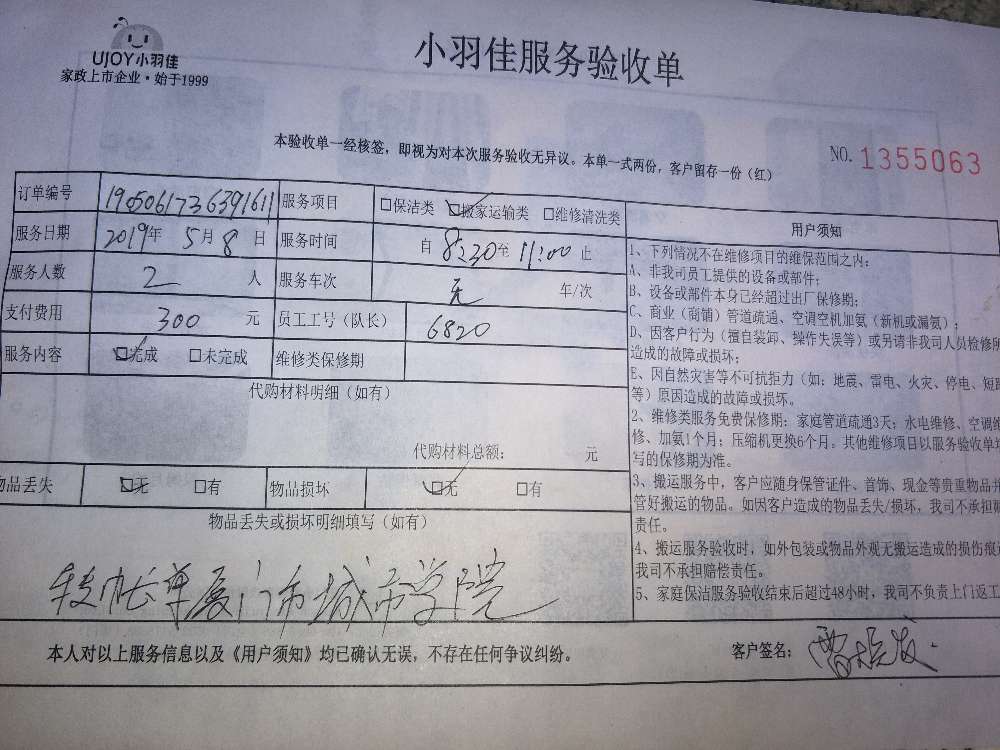 UJOY小羽佳
家政上市企业·始于1999
小羽佳服务验收单
本验收单一经核签，即视为对本次服务验收无异议。本单一式两份，客户留存一份（红）
NO. 1355063
订单编号 1905061736391611 服务项目 □保洁类 □搬家运输类 □维修清洗类
服务日期 2019年 5月 8日 服务时间 自 8:30至 11:00 止
服务人数 2 人 服务车次 无 车/次
支付费用 300 元 员工工号（队长） 6820
服务内容 □完成 □未完成 维修类保修期
代购材料明细（如有）
代购材料总额： 元
物品丢失 □无 □有 物品损坏 □无 □有
物品丢失或损坏明细填写（如有）
厦门市城市学院
本人对以上服务信息以及《用户须知》均已确认无误，不存在任何争议纠纷。
客户签名：
用户须知
1、下列情况不在维修项目的维保范围之内：
A、非我司员工提供的设备或部件；
B、设备或部件本身已经超过出厂保修期；
C、商业（商铺）管道疏通、空调空机加氨（新机或漏氨）；
D、因客户行为（擅自装卸、操作失误等）或另请非我司人员检修所
造成的故障或损坏；
E、因自然灾害等不可抗拒力（如：地震、雷电、火灾、停电、短
等）原因造成的故障或损坏。
2、维修类服务免费保修期：家庭管道疏通3天；水电维修、空调维
修、加氨1个月；压缩机更换6个月。其他维修项目以服务验收单
写的保修期为准。
3、搬运服务中，客户应随身保管证件、首饰、现金等贵重物品并
管好搬运的物品。如因客户造成的物品丢失/损坏，我司不承担
责任。
4、搬运服务验收时，如外包装或物品外观无搬运造成的损伤痕
我司不承担赔偿责任。
5、家庭保洁服务验收结束后超过48小时，我司不负责上门返工